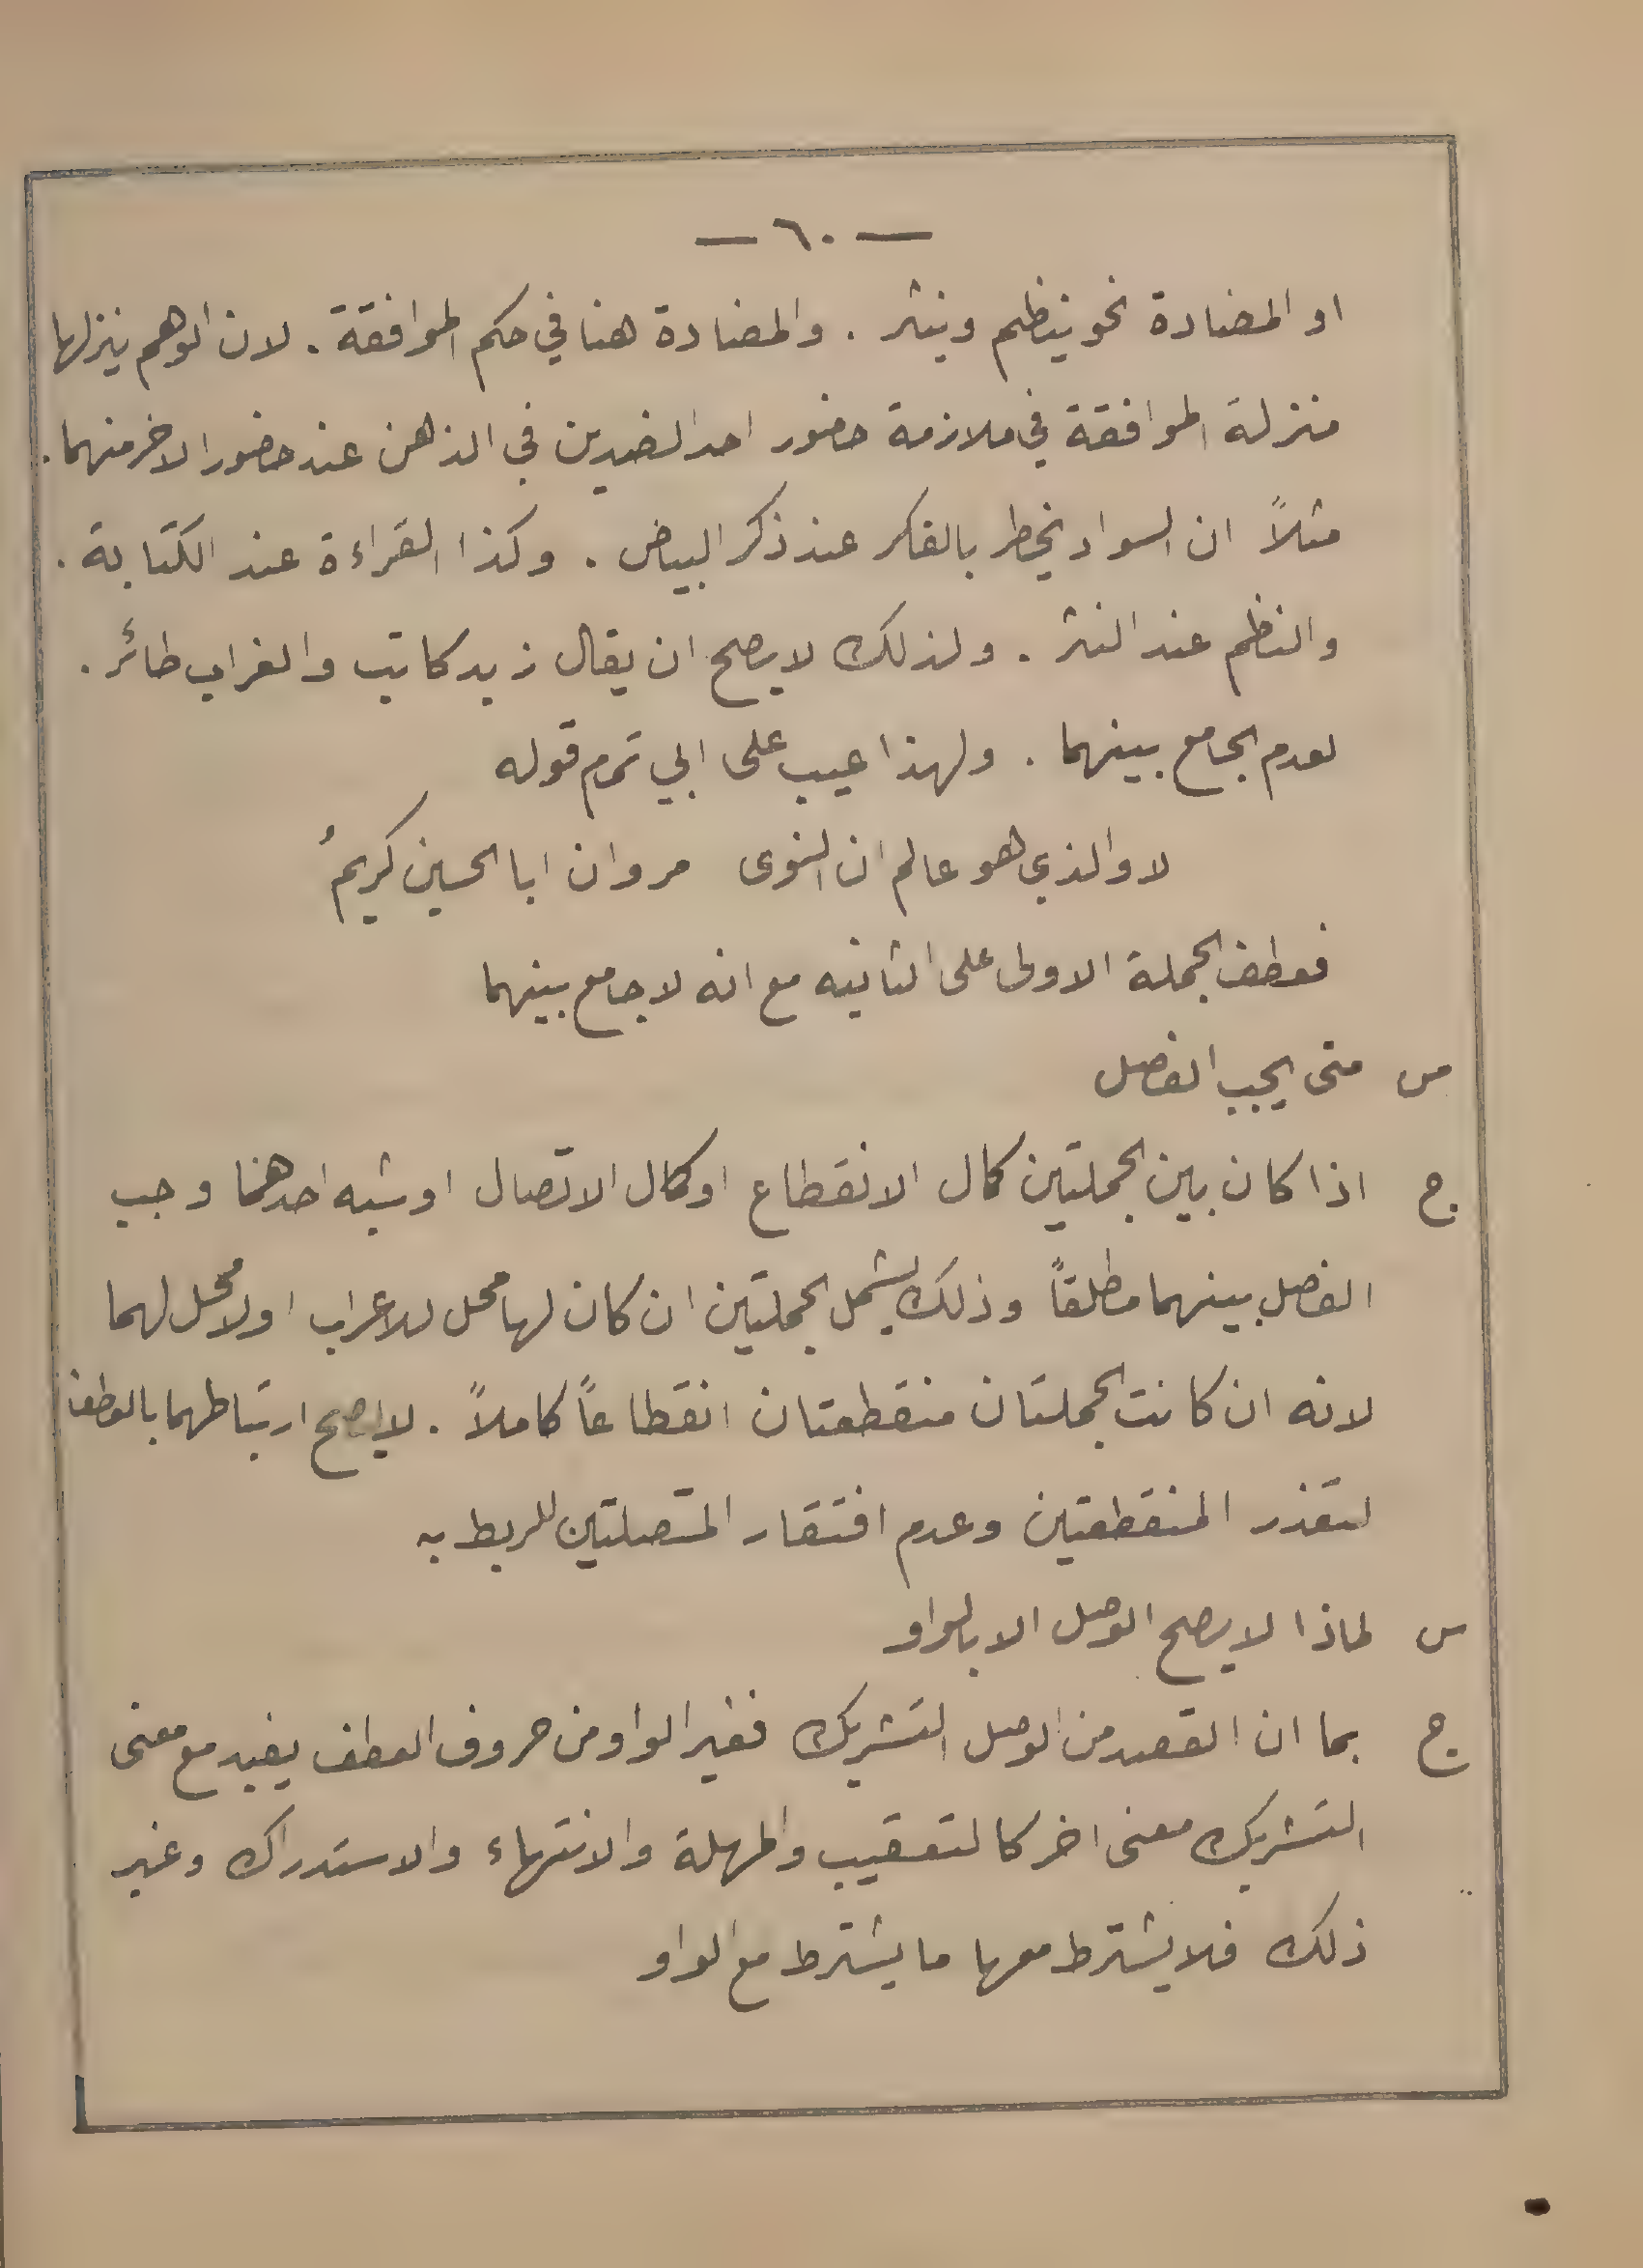 — ٦٠ —
او المضادة نحو ينظم وينثر . والمضادة هنا في حكم الموافقة . لان الوهم ينزلها
منزلة الموافقة في ملازمة حضور احد الضدين في الذهن عند حضور الاخر منهما .
مثلاً ان السواد يخطر بالفكر عند ذكر البياض . وكذا القراءة عند الكتابة .
والنظم عند النثر . ولذلك لا يصح ان يقال زيد كاتب والغراب طائر .
لعدم الجامع بينهما . ولهذا عيب على ابي تمام قوله
لا والذي هو عالم ان النوى مر وان ابا الحسين كريمُ
فعطف الجملة الاولى على الثانيه مع انه لا جامع بينهما
س متى يجب الفصل
ج اذا كان بين الجملتين كمال الانقطاع او كمال الاتصال او شبه احدهما وجب
الفصل بينهما مطلقاً وذلك يشمل الجملتين ان كان لها محل للاعراب او لا محل لهما
لانه ان كانت الجملتان منقطعتان انقطاعاً كاملاً . لا يصح ارتباطهما بالعطف
لتعذر المنقطعتين وعدم افتقار المتصلتين للربط به
س لماذا لا يصح الوصل الا بالواو
ج بما ان القصد من الوصل التشريك فغير الواو من حروف العطف يفيد مع معنى
التشريك معنى اخر كالتعقيب والمهلة والانتهاء والاستدراك وغير
ذلك فلا يشترط معها ما يشترط مع الواو